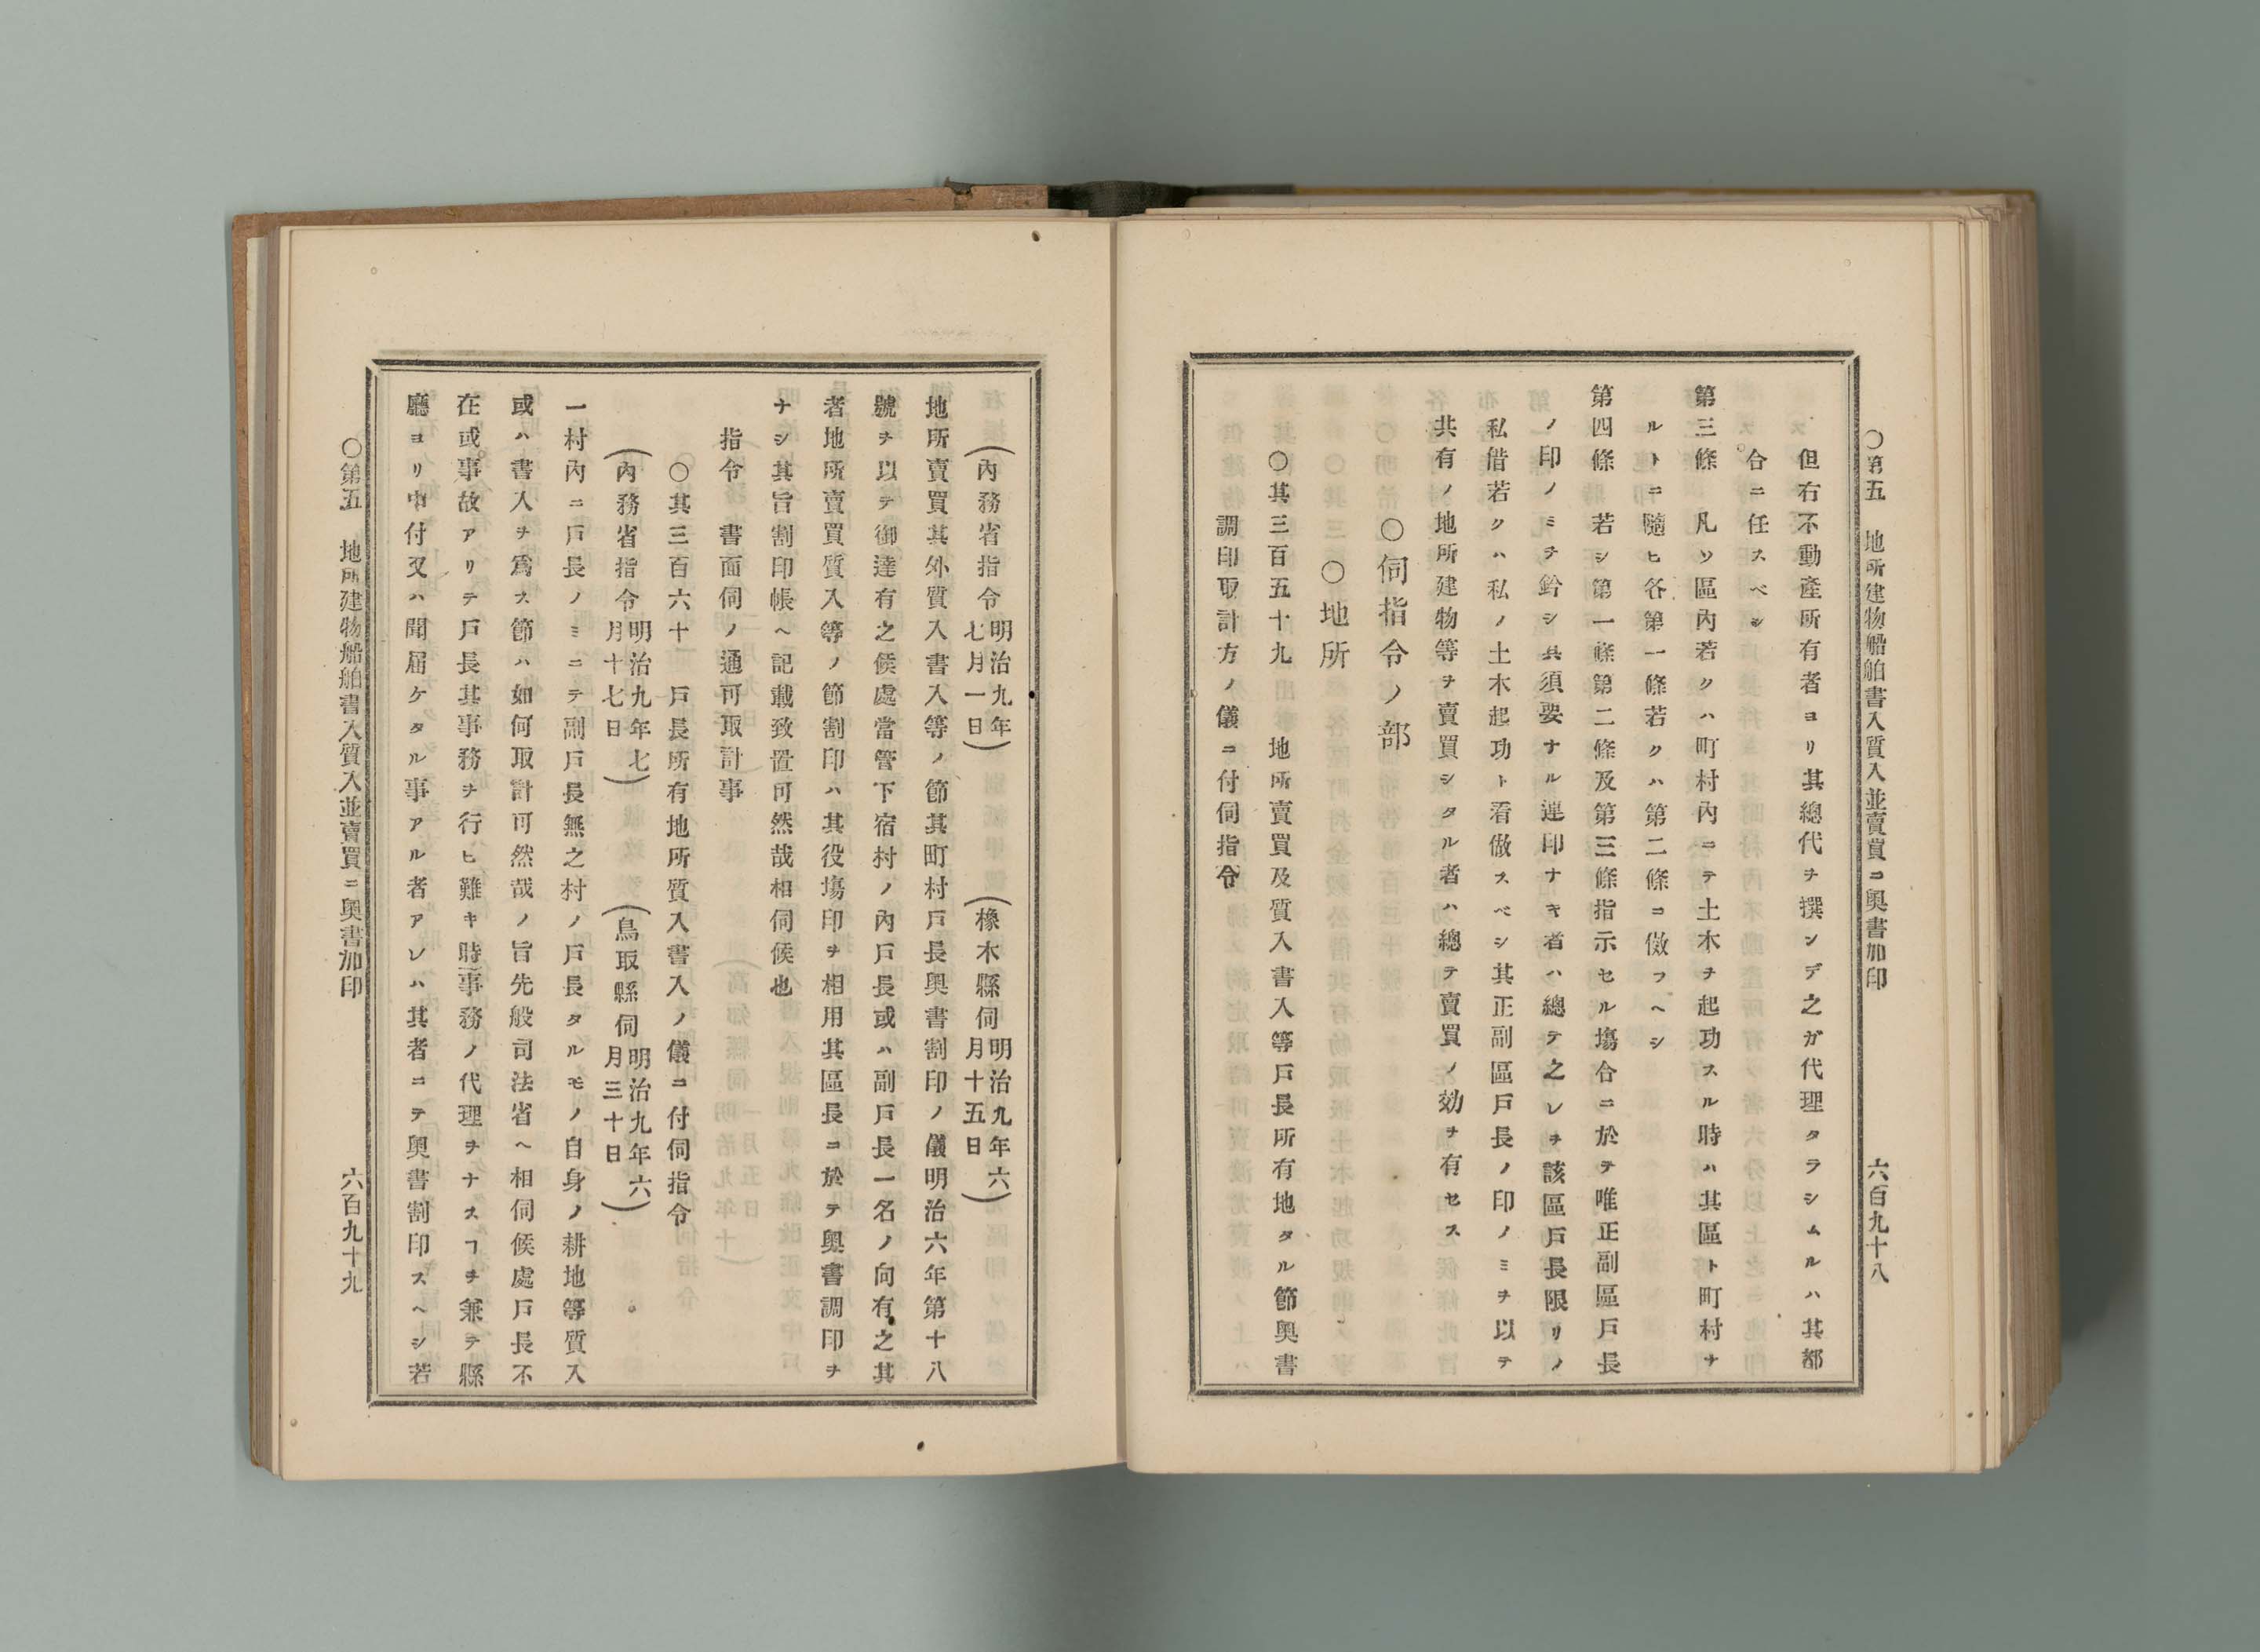 ○第五　地所建物船舶書入質入並賣買ニ奧書加印　六百九十八
但右不動產所有者ヨリ其總代ヲ撰ンデ之ガ代理タラシムルハ其都
合ニ任スベシ
第三條　凡ソ區內若クハ町村內ニテ土木ヲ起功スル時ハ其區ト町村ナ
ルトニ隨ヒ各第一條若クハ第二條ニ倣フヘシ
第四條　若シ第一條第二條及第三條指示セル塲合ニ於テ唯正副區戶長
ノ印ノミヲ鈐シ其須要ナル連印ナキ者ハ總テ之レヲ該區戶長限リノ
私借若クハ私ノ土木起功ト看做スベシ其正副區戶長ノ印ノミヲ以テ
共有ノ地所建物等ヲ賣買シタル者ハ總テ賣買ノ効ヲ有セス
○伺指令ノ部
○地所
○其三百五十九　地所賣買及質入書入等戶長所有地タル節奧書
調印取計方ノ儀ニ付伺指令
（內務省指令明治九年七月一日）（橡木縣伺明治九年六月十五日）
地所賣買其外質入書入等ノ節其町村戶長奧書割印ノ儀明治六年第十八
號ヲ以テ御達有之候處當管下宿村ノ內戶長或ハ副戶長一名ノ向有之其
者地所賣買質入等ノ節割印ハ其役塲印ヲ相用其區長ニ於テ奧書調印ヲ
ナシ其旨割印帳ヘ記載致置可然哉相伺候也
指令　書面伺ノ通可取計事
○其三百六十　戶長所有地所質入書入ノ儀ニ付伺指令
（內務省指令明治九年七月十七日）（鳥取縣伺明治九年六月三十日）
一村內ニ戶長ノミニテ副戶長無之村ノ戶長タルモノ自身ノ耕地等質入
或ハ書入ヲ爲ス節ハ如何取計可然哉ノ旨先般司法省ヘ相伺候處戶長不
在或事故アリテ戶長其事務ヲ行ヒ難キ時事務ノ代理ヲナスヿヲ兼テ縣
廳ヨリ申付又ハ聞届ケタル事アル者アレハ其者ニテ奧書割印スヘシ若
○第五　地所建物船舶書入質入並賣買ニ奧書加印　六百九十九